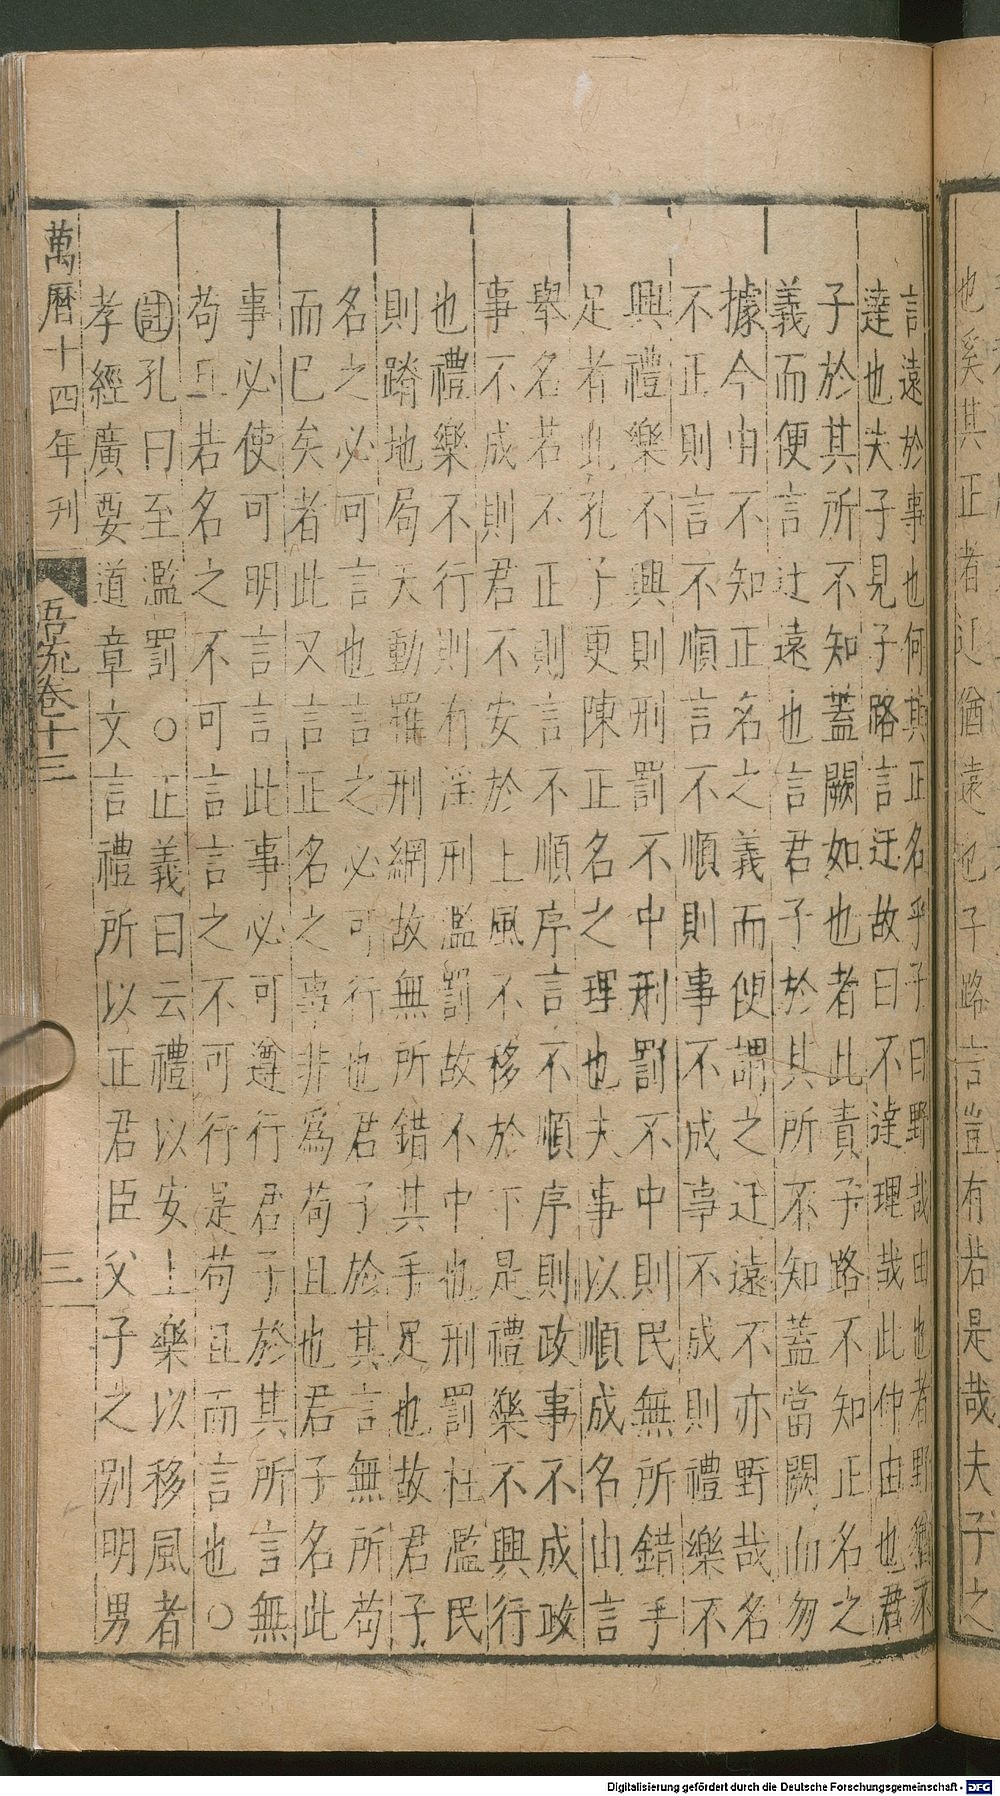 也奚其正者迂猶遠也子路言豈有若是哉夫子之
言遠於事也何其正名乎子曰野哉由也者野猶不
達也夫子見子路言迂故曰不達理哉此仲由也君
子於其所不知蓋闕如也者此責子路不知正名之
義而便言迂遠也言君子於其所不知蓋當闕而勿
據今由不知正名之義而便謂之迂遠不亦野哉名
不正則言不順言不順則事不成事不成則禮樂不
興禮樂不興則刑罰不中刑罰不中則民無所錯手
足者此孔子更陳正名之理也夫事以順成名由言
舉名若不正則言不順序言不順序則政事不成政
事不成則君不安於上風不移於下是禮樂不興行
也禮樂不行則有淫刑濫罰故不中也刑罰枉濫民
則蹐地局天動罹刑網故無所錯其手足也故君子
名之必可言也言之必可行也君子於其言無所苟
而已矣者此又言正名之事非爲苟且也君子名此
事必使可明言言此事必可遵行君子於其所言無
苟且若名之不可言言之不可行是苟且而言也○
註孔曰至濫罰○正義曰云禮以安上樂以移風者
孝經廣要道章文言禮所以正君臣父子之別明男
萬曆十四年刊 語疏卷十三 三
Digitalisierung gefördert durch die Deutsche Forschungsgemeinschaft - DFG